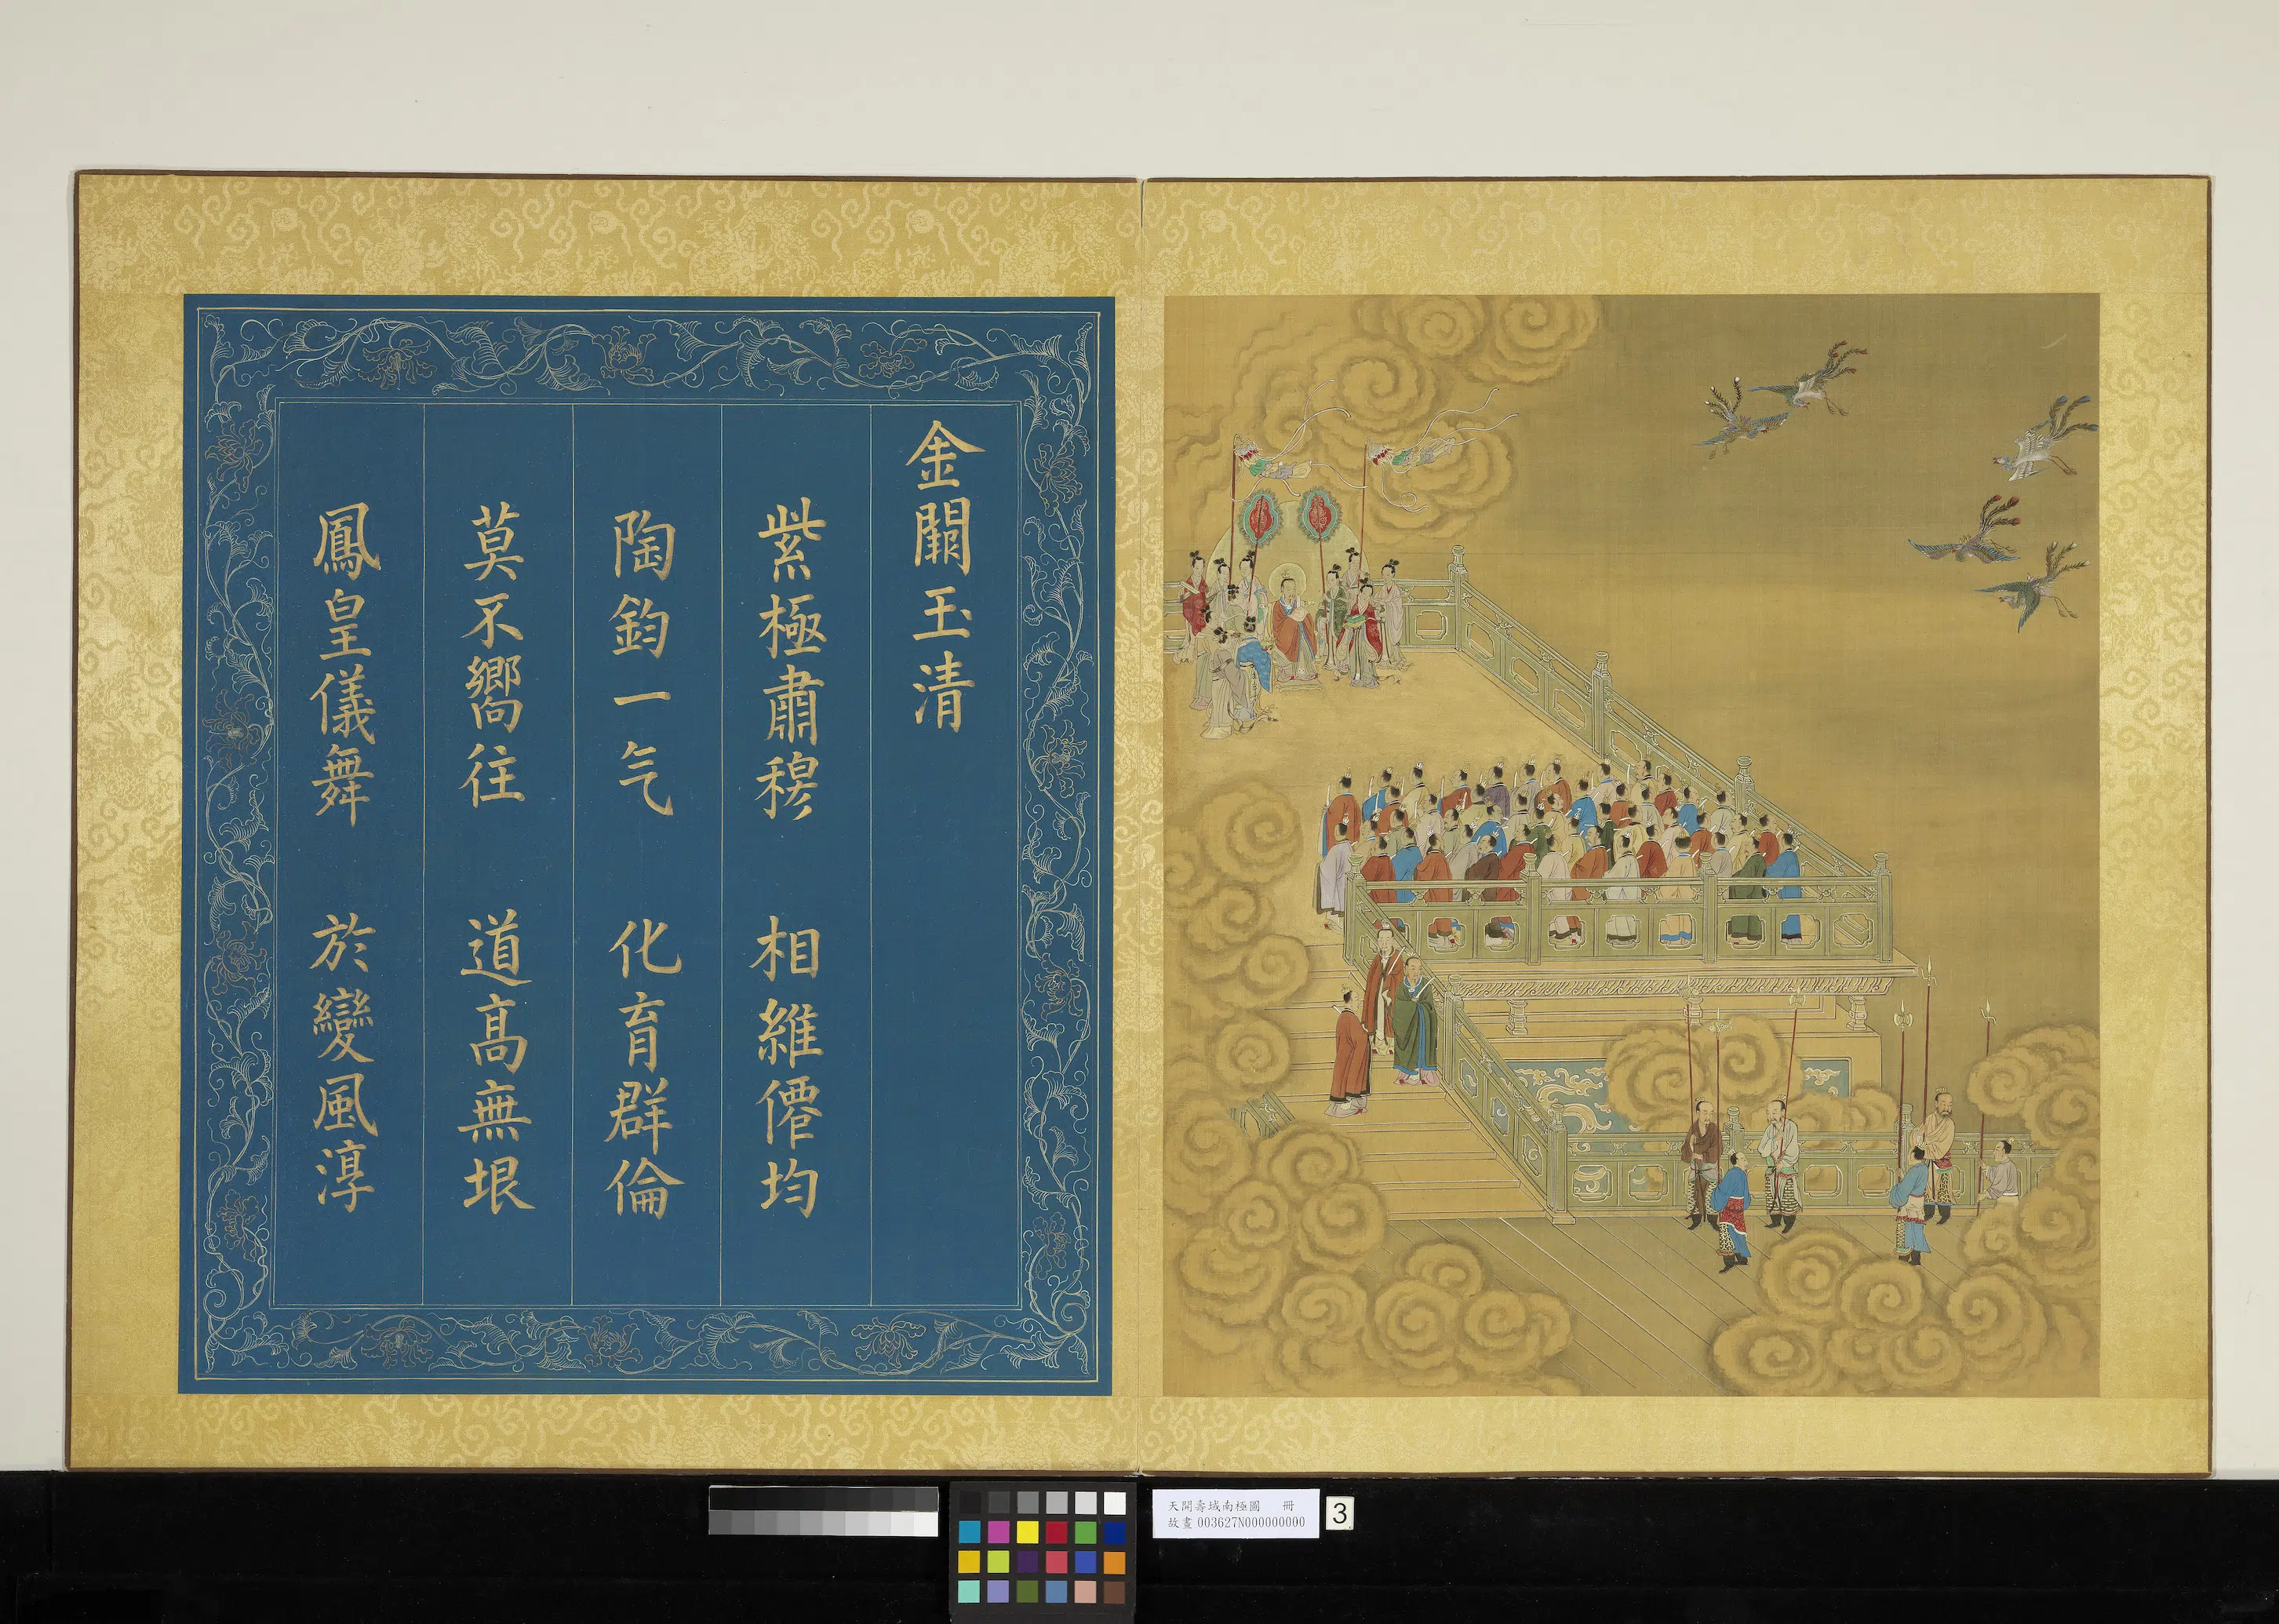 金闕玉清
紫極肅穆　相維僊均
陶鈞一气　化育群倫
莫不嚮往　道高無垠
鳳皇儀舞　於變風淳
天開壽域南極圖　冊
故畫 003627N000000000
3